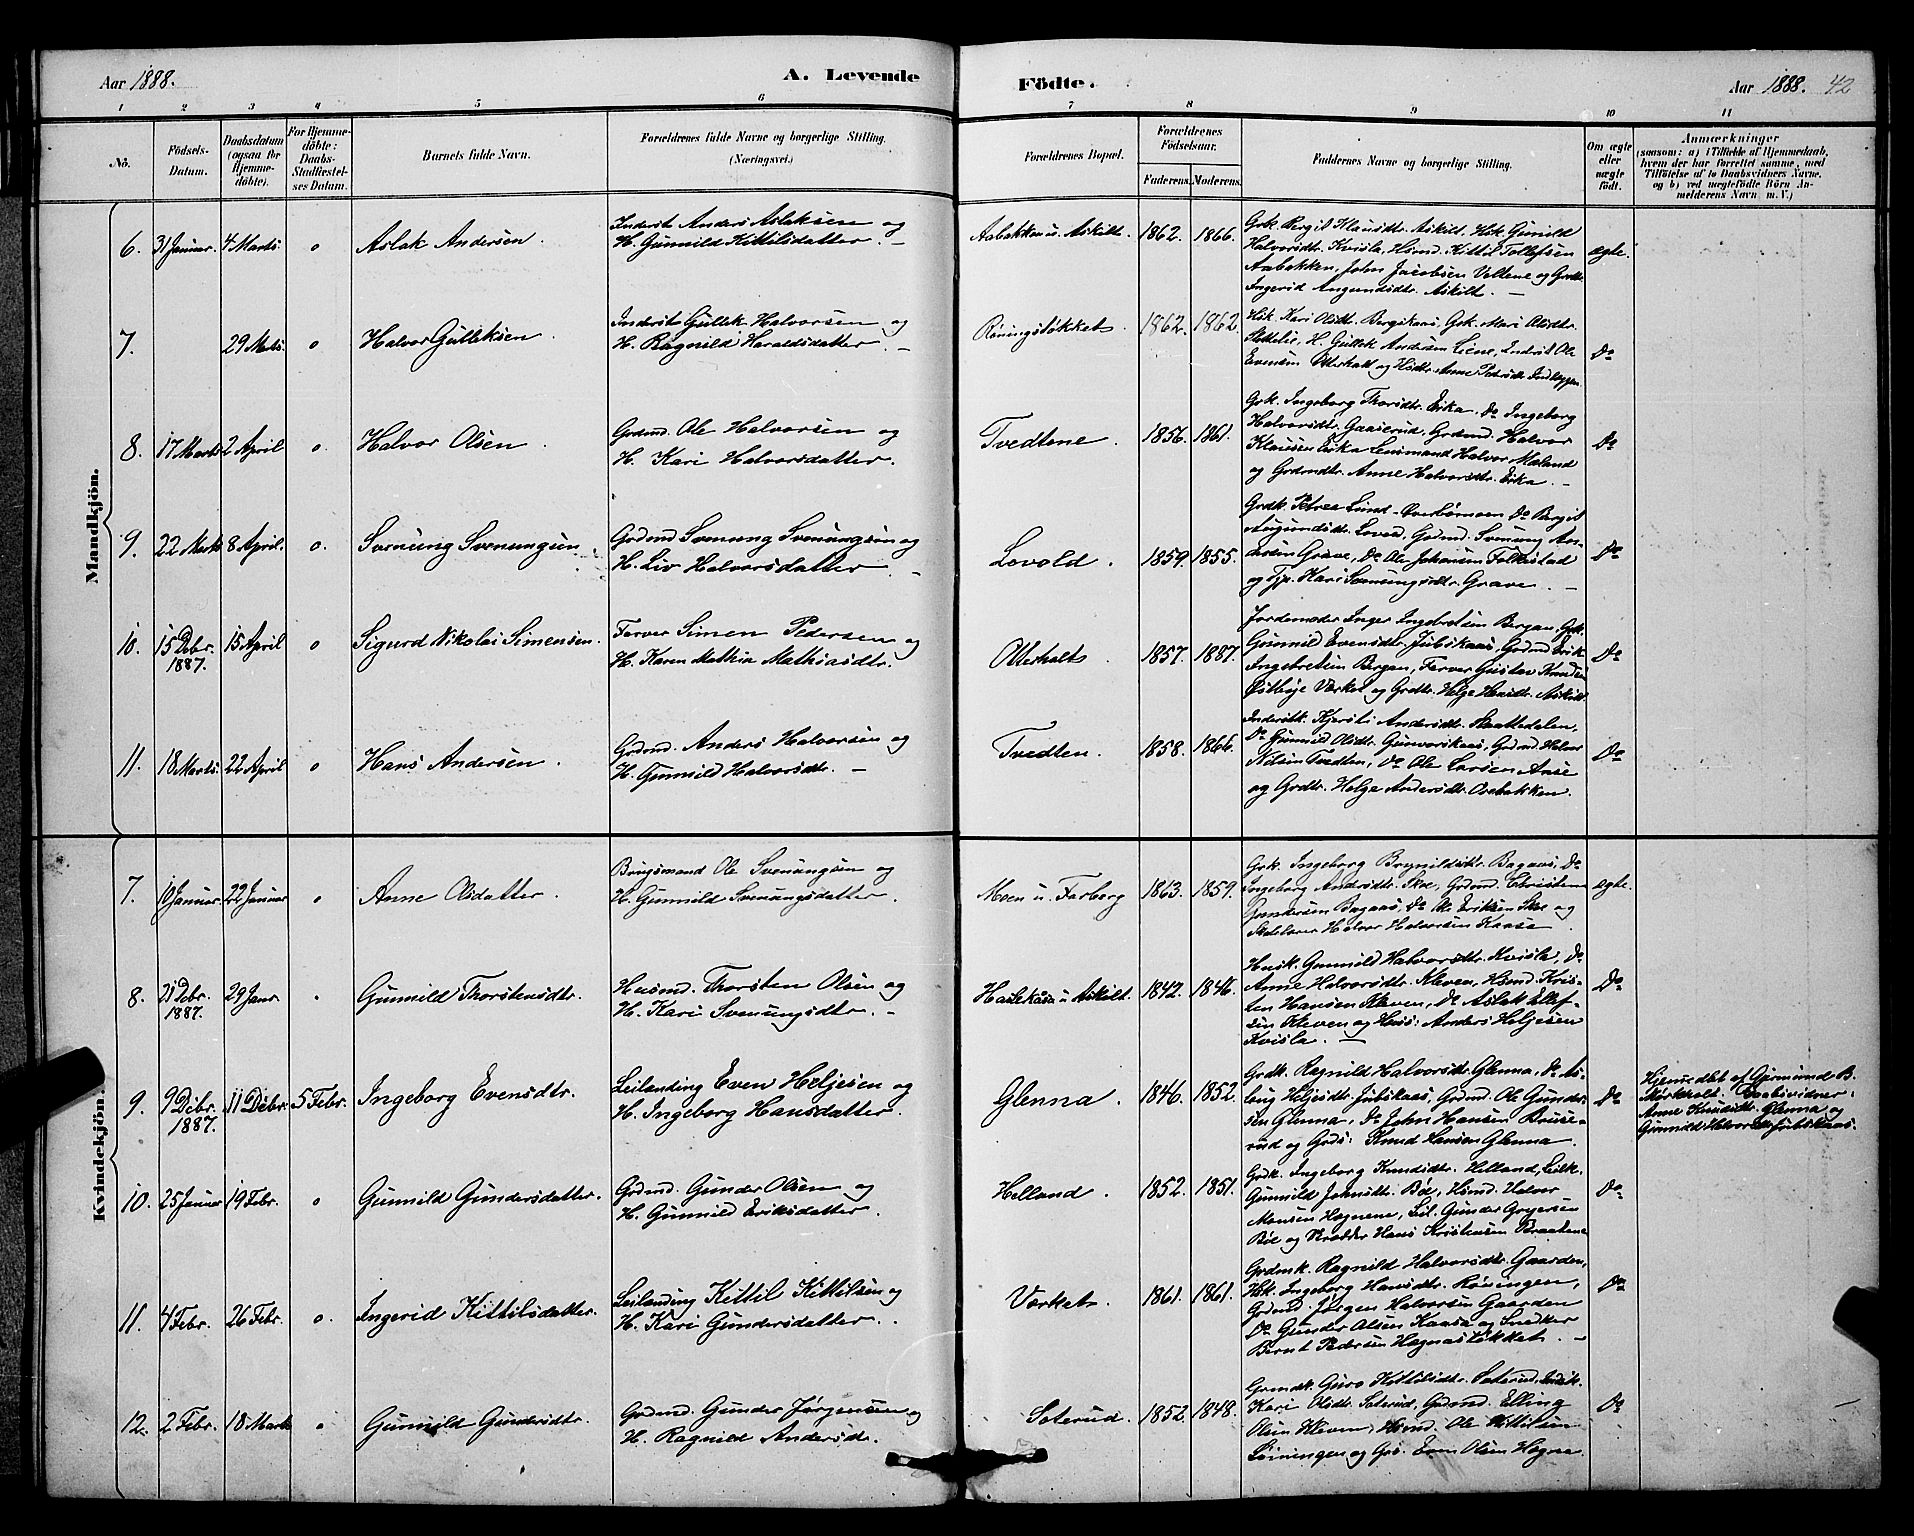 Aar 1888.
A. Levende
Födte.
Aar 1888. 42
1 2 3 4 5 6 7 8 9 10 11
No.
Födsels-
Datum.
Daabsdatum
(ogsaa for
Hjemme-
döbte).
For Hjemme-
döbte:
Daabs-
Stadfæstel-
ses Datum.
Barnets fulde Navn.
Forældrenes fulde Navne og borgerlige Stilling.
(Næringsvei.)
Forældrenes Bopæl.
Forældrenes
Födselsaar.
Faderens. Moderens.
Faddernes Navne og borgerlige Stilling.
Om ægte
eller
uægte
födt.
Anmærkninger
(saasom: a) i Tilfælde af Hjemmedaab,
hvem der har forrettet samme, med
Tilföielse af to Daabsvidners Navne,
og b) ved uægtefödte Börn An-
melderens Navn m. V.)
Mandkjön.
6. 31 Januar. 4 Marts o Aslak Andersen.
Inderst Anders Aslaksen og
H. Gunnild Kittilsdatter. —
Aabakken u. Askilt. 1862. 1866.
Grk. Bergit Klausdtr. Askilt. Hsk. Gunild
Halvorsdtr. Kvisla, Hsmd. Kittil Tollefsen
Aabakken, John Jacobsen Veltene og Grdtr.
Ingerid Amundsdtr. Askilt. —
ægte.
7. 29 Marts. o Halvor Gulleksen
Inderst Gullek Halvorsen og
H. Ragnild Haraldsdatter. —
Röningslökket. 1862. 1862.
Hsk. Kari Olsdtr. Bergskaas, Grk. Mari Olsdtr.
H. Gullek Andersen Liene, Inderst Ole
Evensen Otterholt og Anne
Do
8. 17 Marts 2 April o. Halvor Olsen.
Grdmd. Ole Halvorsen og
H. Kari Halvorsdatter.
Tvedtene. 1856. 1861.
Grk. Ingeborg Thorsdtr. Eika. Do Ingeborg
Halvorsdtr. Gaaserud, Grdmd. Halvor
Klausen Eika Lensmand Halvor Mæland
og Grdmdtr. Anne Halvorsdtr. Eika. —
Do
9. 22 Marts 8 April. o. Svenung Svenungsen
Grdmd Svenung Svenungsen og
H. Liv Halvorsdatter. —
Lovold. 1859. 1855.
Grdk. Petrea Lund Do Bergit
Augundsdtr. Grdmd. Svenung An-
dersen Grave, Do Ole Johansen Folkestad
og Tjp. Kari Svenungsdtr. Grave. —
Do
10. 15 Debr. 15 April o Sigurd Nikolai Simensen.
1887.
Farver Simen Pedersen og
H. Karen Mathia Mathiasdtr.
Otterholt. 1857. 1887.
Jordemoder Inger Ingebretsen Bergan, Grk.
Gunnild Evensdtr. Jubskaas, Grdmd Erik
Ingebretsen Bergan, Farver Gustav Knudsen
Østbøje Værket og Grdtr. Helge Hansdtr. Askilt.
Do
11. 18 Marts. 22 April o Hans Andersen.
Grdmd. Anders Halvorsen og
H. Gunnild Halvorsdtr. —
Tvedten. 1858. 1866.
Inderstk. Kjersti Andersdtr. Skaattedalen,
Do Gunnild Olsdtr. Gunvorskaas, Grdmd
Nilsen Tvedten, Do Ole Larsen Aase
og Grdtr. Helge Andersdtr. Ovebakken.
Do
Kvindekjön.
7. 10 Januar. 22 Januar o Anne Olsdatter.
Brugsmand Ole Svenungsen og
H. Gunnild Svenungsdatter.
Moen u. Farberg 1863. 1859.
Grk. Ingeborg Brynildsdtr. Bagaas, Do
Ingeborg Andersdtr. Skoe, Grdmd. Christen
Gundersen Bagaas, Do Ole Eriksen Skoe og
Skolelærer Halvor Halvorsen Kaasa.
ægte.
8. 21 Debr. 29 Janr. Gunnild Thorstensdtr.
1887.
Husmd. Thorsten Olsen og
H. Kari Svenungsdtr. —
Haslekaasa u. Askilt. 1842. 1846.
Husk. Gunnild Halvorsdtr. Kvisla, Do
Anne Halvorsdtr. Kleven, Hsmd. Kris-
ten Hansen Kleven, Do Aslak Ellef-
sen Kleven og Huss: Anders Heljesen
Kvisla. —
Do
9. 9 Debr. 11 Debr. 5 Febr. Ingeborg Evensdtr.
1887.
Leilænding Even Heljesen og
H. Ingeborg Hansdatter.
Glenna. 1846. 1852.
Grdk. Ragnild Halvorsdtr Glenna, Do As-
laug Heljesdtr. Jubskaas, Grdmd. Ole Gunder-
sen Glenna, Do John Hansen Bruse-
rud og Grds: Knud Hansen Glenna.
Do
Hjemmedöbt af Gjermund B.
Mörkholt. Daabsvidner:
Anne Knudsdtr. Glenna og
Gunnild Halvorsdtr. Jubskaas.
10. 25 Januar 19 Febr. o Gunnild Gundersdatter.
Grdmd. Gunder Olsen og
H. Gunnild Eriksdatter.
Helland. 1852. 1851.
Grdk. Ingeborg Knudsdtr. Helland, Leilk.
Gunnild Johnsdtr. Böe, Hsmd. Halvor
Monsen Hægnene, Leil. Gunder Gregersen
Böe og Skrædder Hans Kristensen Braatene
Do
11. 4 Febr. 26 Febr. o. Ingerid Kittilsdatter.
Leilænding Kittil Kittilsen og
H. Kari Gundersdatter.
Værket. 1861. 1861.
Grdmk. Ragnild Halvorsdtr. Gaarden,
Hsk. Ingeborg Hansdtr. Röningen,
Grdmd. Jörgen Halvorsen Gaarden
Do Gunder Olsen Kaasa og Snedker
Bernt Pedersen Hægnaslökket. —
Do
12. 2 Febr. 18 Marts o Gunnild Gundersdtr.
Grdmd. Gunder Jørgensen og
H. Ragnild Andersdtr.
Soterud. 1852. 1848.
Grmdk. Guro Kittilsdtr. Soterud,
Kari Olsdtr. Soterud, Grdmd. Elling
Olsen Kleven, Hsmd. Ole Kittilsen
Löiningen og Grs. Even Olsen Hægna.
Do